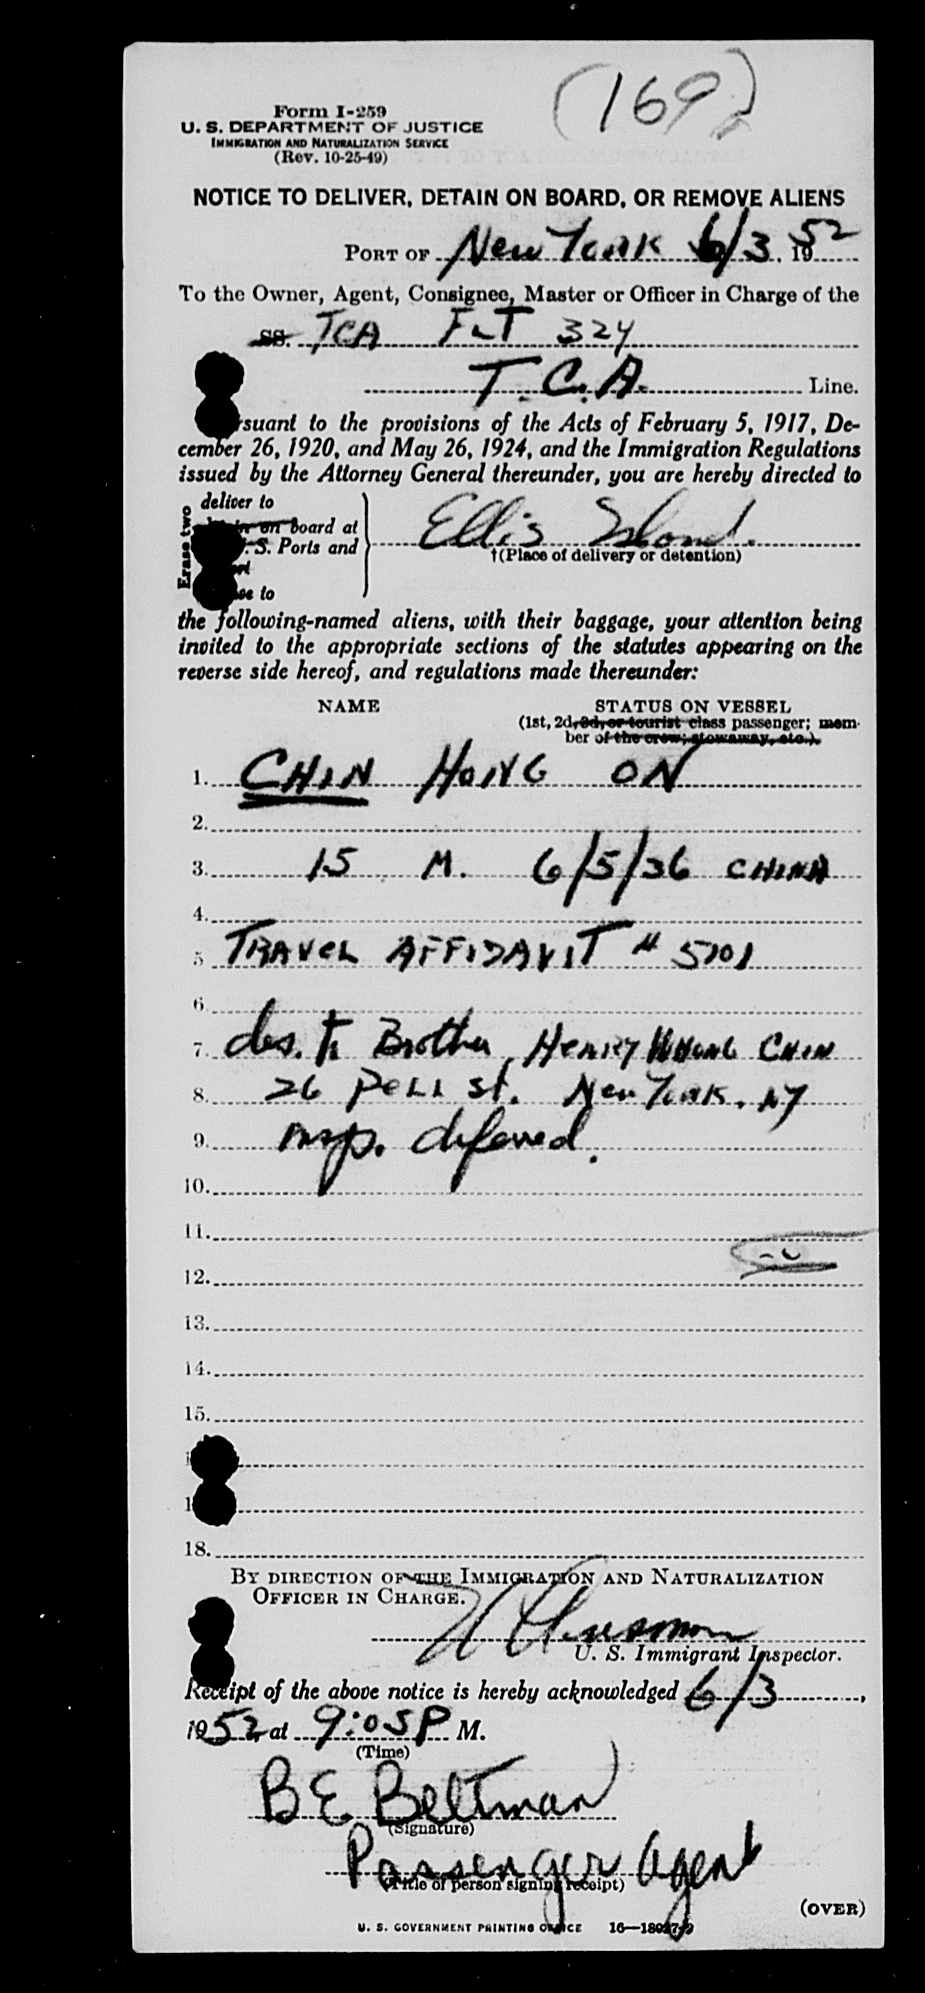 (169)
Form I-259
U. S. DEPARTMENT OF JUSTICE
IMMIGRATION AND NATURALIZATION SERVICE
(Rev. 10-25-49)
NOTICE TO DELIVER, DETAIN ON BOARD, OR REMOVE ALIENS
PORT OF New York 6/3, 1952
To the Owner, Agent, Consignee, Master or Officer in Charge of the
SS. TCA FLT 324
T.C.A. Line.
rsuant to the provisions of the Acts of February 5, 1917, De-
cember 26, 1920, and May 26, 1924, and the Immigration Regulations
issued by the Attorney General thereunder, you are hereby directed to
Erase two
deliver to
on board at
. S. Ports and
to
Ellis Island.
†(Place of delivery or detention)
the following-named aliens, with their baggage, your attention being
invited to the appropriate sections of the statutes appearing on the
reverse side hereof, and regulations made thereunder:
NAME STATUS ON VESSEL
(1st, 2d, 3d, or tourist class passenger; mem-
ber of the crew; stowaway, etc.).
1. CHIN HONG ON
2.
3. 15 M. 6/5/36 CHINA
4.
5 TRAVEL AFFIDAVIT # 5701
6.
7. des. to Brother, HENRY CHIN
8. 26 PELL St. New York. NY
9. insp. defered.
10.
11.
12.
13.
14.
15.
18.
BY DIRECTION OF THE IMMIGRATION AND NATURALIZATION
OFFICER IN CHARGE.
U. S. Immigrant Inspector.
Receipt of the above notice is hereby acknowledged 6/3,
1952 at 9:05 P M.
(Time)
B E Beltman
(Signature)
Passenger Agent
(Title of person signing receipt)
(OVER)
U. S. GOVERNMENT PRINTING OFFICE